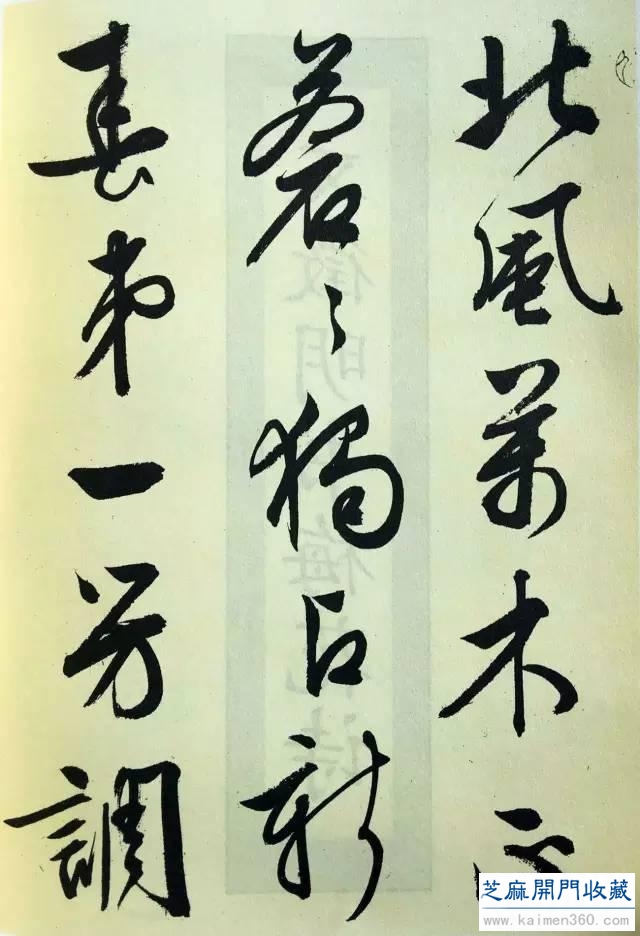 北風萬木正
蒼々獨占新
春第一芳調
芝麻開門收藏
www.kaimen360.com